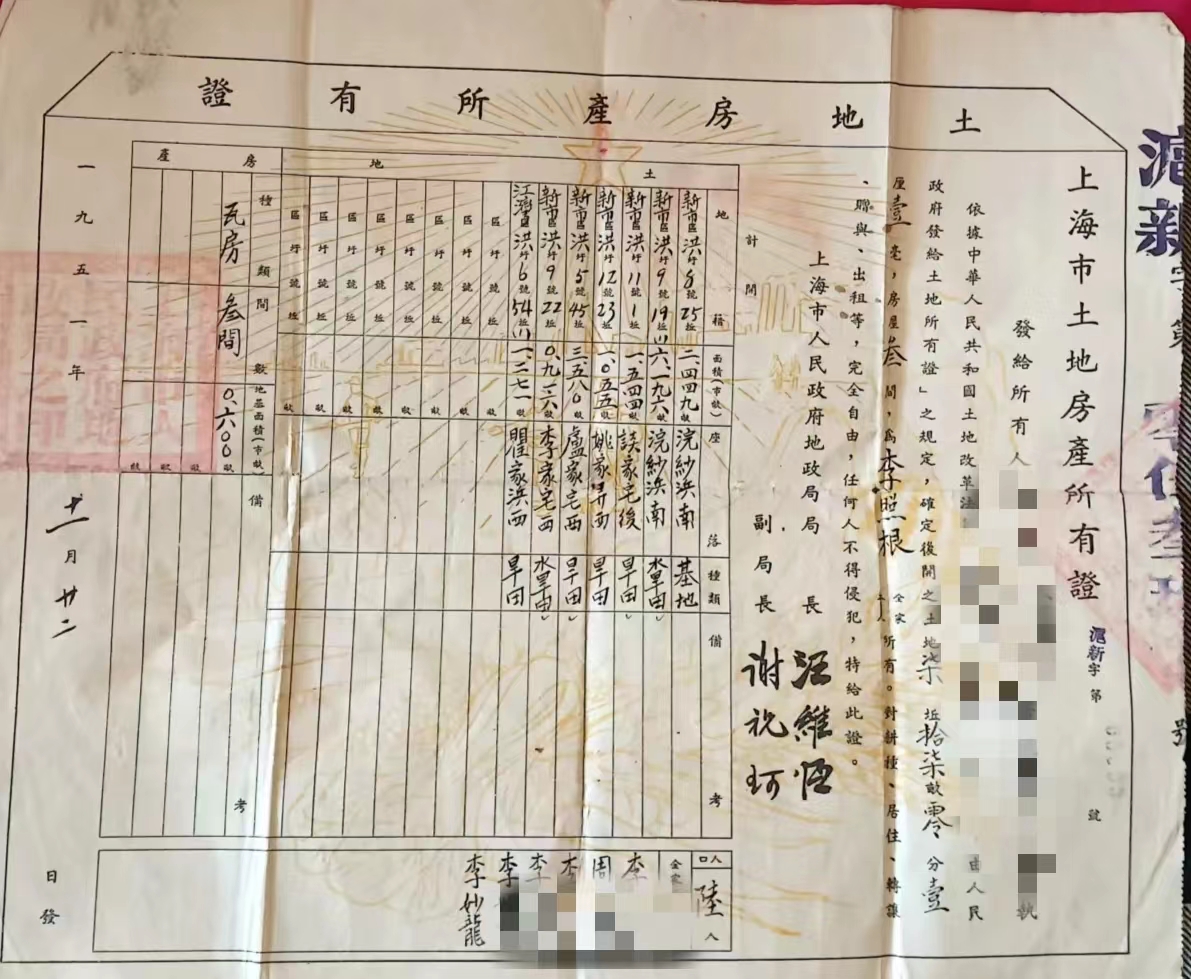 土地房產所有證
滬新字第
上海市土地房產所有證
滬新字第 號
發給所有人 執
依據中華人民共和國土地改革法 由人民
政府發給土地所有證」之規定，確定後開之土地柒坵拾柒畝零分壹
厘壹毫，房屋叁間，為李照根全家 人所有。對耕種、居住、轉讓
、贈與、出租等，完全自由，任何人不得侵犯，特給此證。
上海市人民政府地政局局長 汪維恒
副局長 谢祝珂
計開
土地
地籍 面積(市畝) 座落 種類 備考
新市區洪圩8號25坵 二.四四九畝 浣紗浜南 基地
新市區洪圩9號19坵 六.一九六畝 浣紗浜南
新市區洪圩11號1坵 一.五四四畝 談家宅後 旱田
新市區洪圩12號23坵 一.〇五五畝 姚家弄西 旱田
新市區洪圩5號45坵 三.五八〇畝 盧家宅西 旱田
新市區洪圩9號22坵 〇.九一六畝 李家宅西
江灣區洪圩6號54坵 一.二七一畝 瞿家浜西 旱田
區圩號坵 畝
區圩號坵 畝
區圩號坵 畝
區圩號坵 畝
區圩號坵 畝
區圩號坵 畝
區圩號坵 畝
區圩號坵 畝
房產
種類 間數 地基面積(市畝) 備考
瓦房 叁間 〇.六〇〇畝
畝
畝
畝
人口 陸人
全家
李
周
李
李
李
李
李妙龍
一九五一年十一月廿二日發